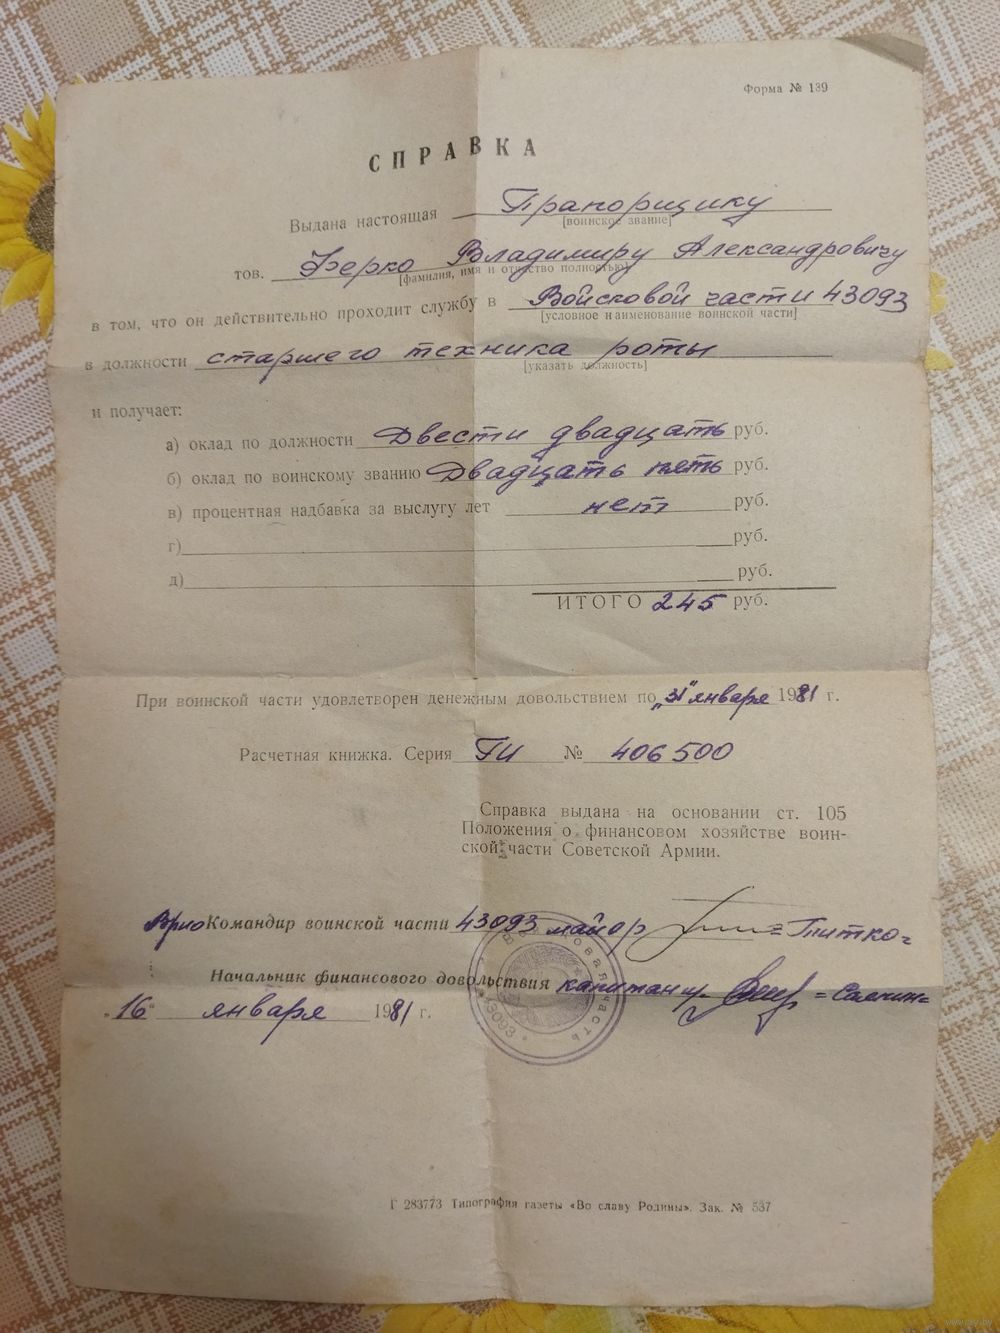 Форма № 139
СПРАВКА
Выдана настоящая Прапорщику
[воинское звание]
тов. Берко Владимиру Александровичу
[фамилия, имя и отчество полностью]
в том, что он действительно проходит службу в Войсковой части 43093
[условное наименование воинской части]
в должности старшего техника роты
[указать должность]
и получает:
а) оклад по должности Двести двадцать руб.
б) оклад по воинскому званию Двадцать пять руб.
в) процентная надбавка за выслугу лет нет руб.
г) руб.
д) руб.
ИТОГО 245 руб.
При воинской части удовлетворен денежным довольствием по „31" января 1981 г.
Расчетная книжка. Серия ГИ № 406500
Справка выдана на основании ст. 105
Положения о финансовом хозяйстве воин-
ской части Советской Армии.
Врио Командир воинской части 43093 майор =Титко=
Начальник финансового довольствия капитан
„16" января 1981 г.
Войсковая часть
43093
Г 283773 Типография газеты «Во славу Родины». Зак. № 537